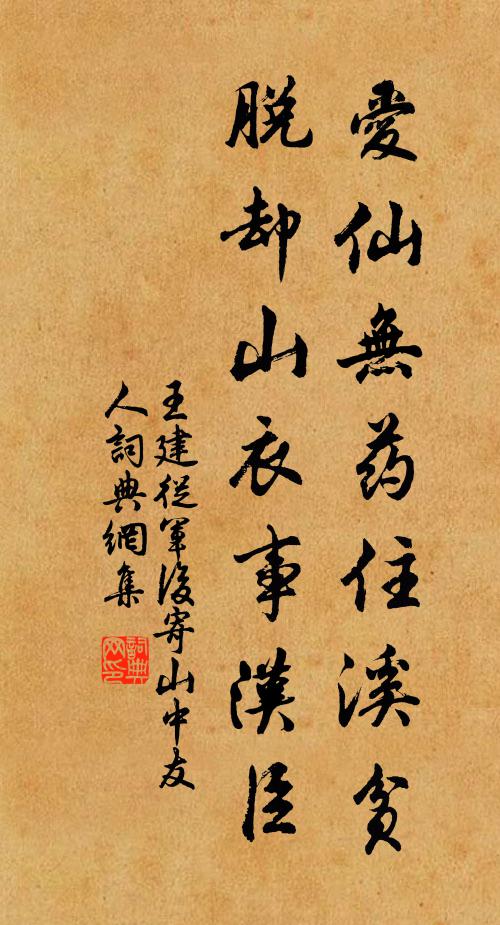 愛仙無药住溪貧
脱却山衣事漢臣
王建從軍後寄山中友
人詞典網集
詞典网印